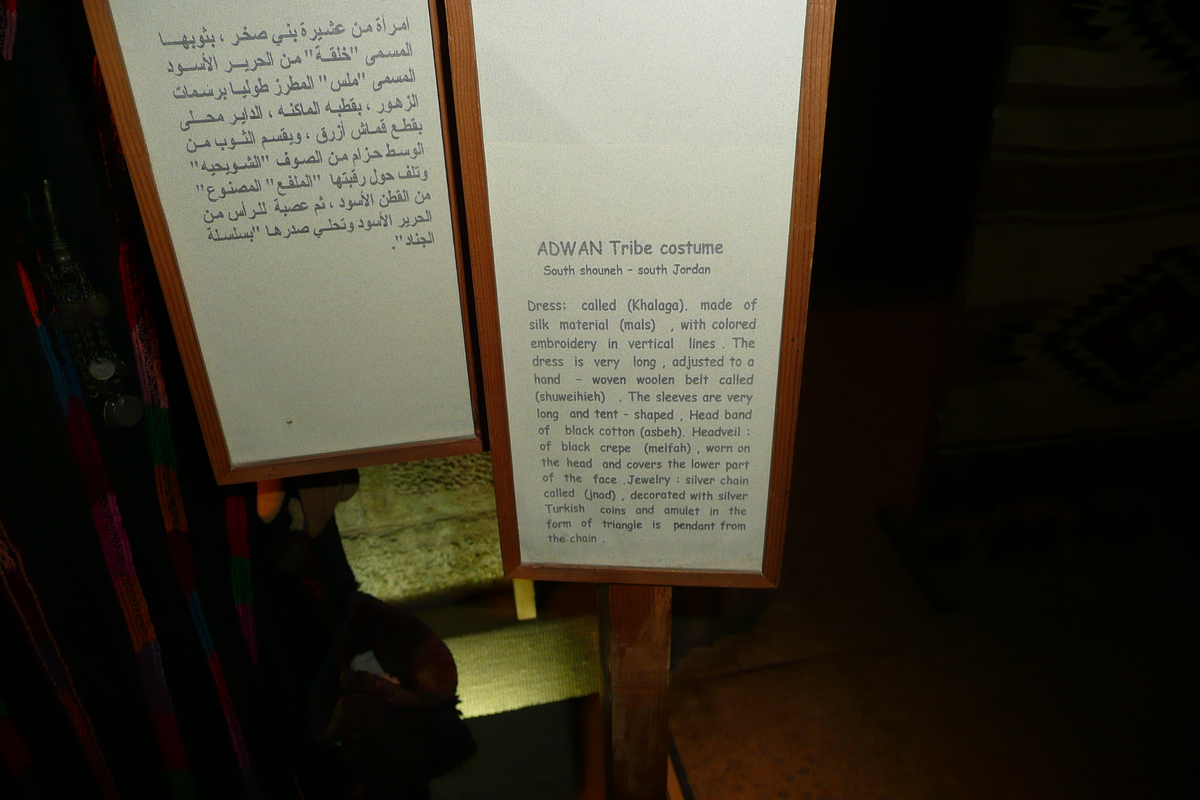 امرأة من عشيرة بني صخر ، بثوبهـــا
المسمى "خلقـة" من الحريـر الأسـود
المسمى "ملس" المطرز طوليـا برسـمات
الزهور ، بقطبه الماكنه ، الداير محـلـى
بقطع قمـاش أزرق ، ويقسم الثـوب مـن
الوسط حزام من الصوف "الشـويحيه"
وتلف حول رقبتها "الملفـع" المصنـوع"
من القطن الأسود ، ثم عصبة للـرأس من
الحرير الأسود وتحلـي صدرهـا "بسلسـلة
الجناد".
ADWAN Tribe costume
South shouneh - south Jordan
Dress: called (Khalaga). made of
silk material (mals) , with colored
embroidery in vertical lines . The
dress is very long , adjusted to a
hand - woven woolen belt called
(shuweihieh) . The sleeves are very
long and tent - shaped , Head band
of black cotton (asbeh). Headveil :
of black crepe (melfah) , worn on
the head and covers the lower part
of the face .Jewelry : silver chain
called (jnad) , decorated with silver
Turkish coins and amulet in the
form of triangle is pendant from
the chain .